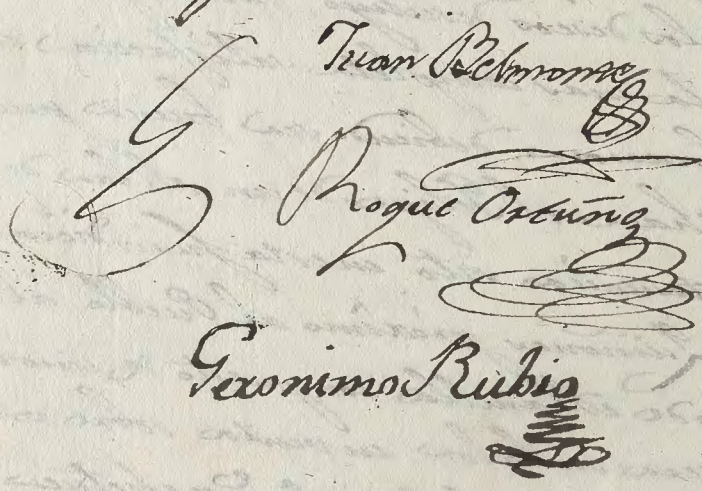 Juan Belmonte
Roque Ortuño
Geronimo Rubio